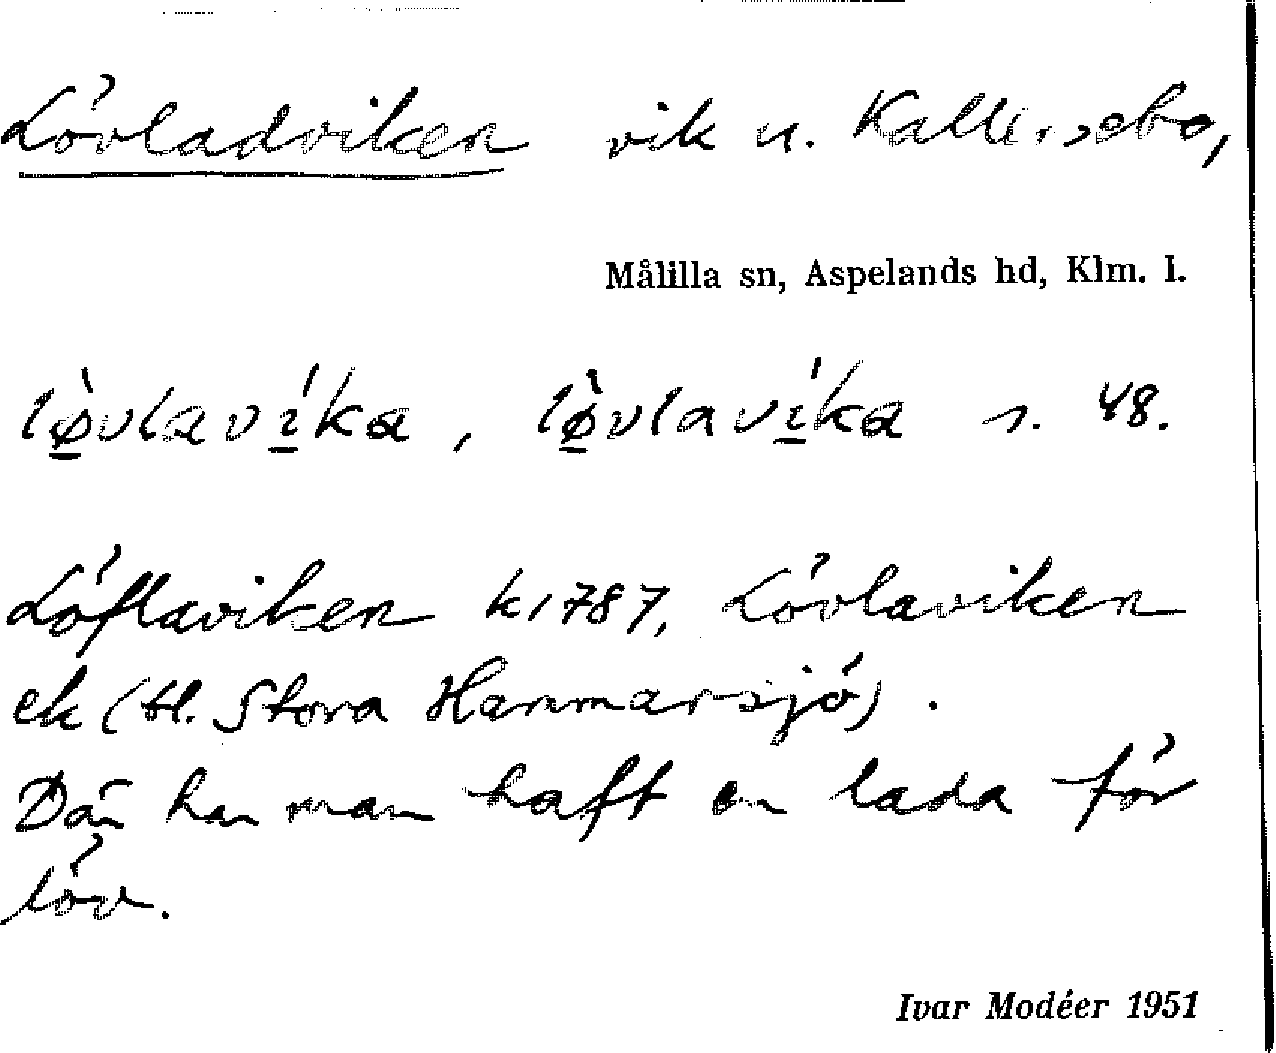 Lövladviken vik u. Kallersebo,
Målilla sn, Aspelands hd, Klm. l.
lø̱̀vlaví̱ka, lø̱̀vlaví̱ka s. 48.
Löflaviken k 1787, Lövlaviken
ek (tl. Stora Hammarsjö).
Där har man haft en lada för
löv.
Ivar Modéer 1951